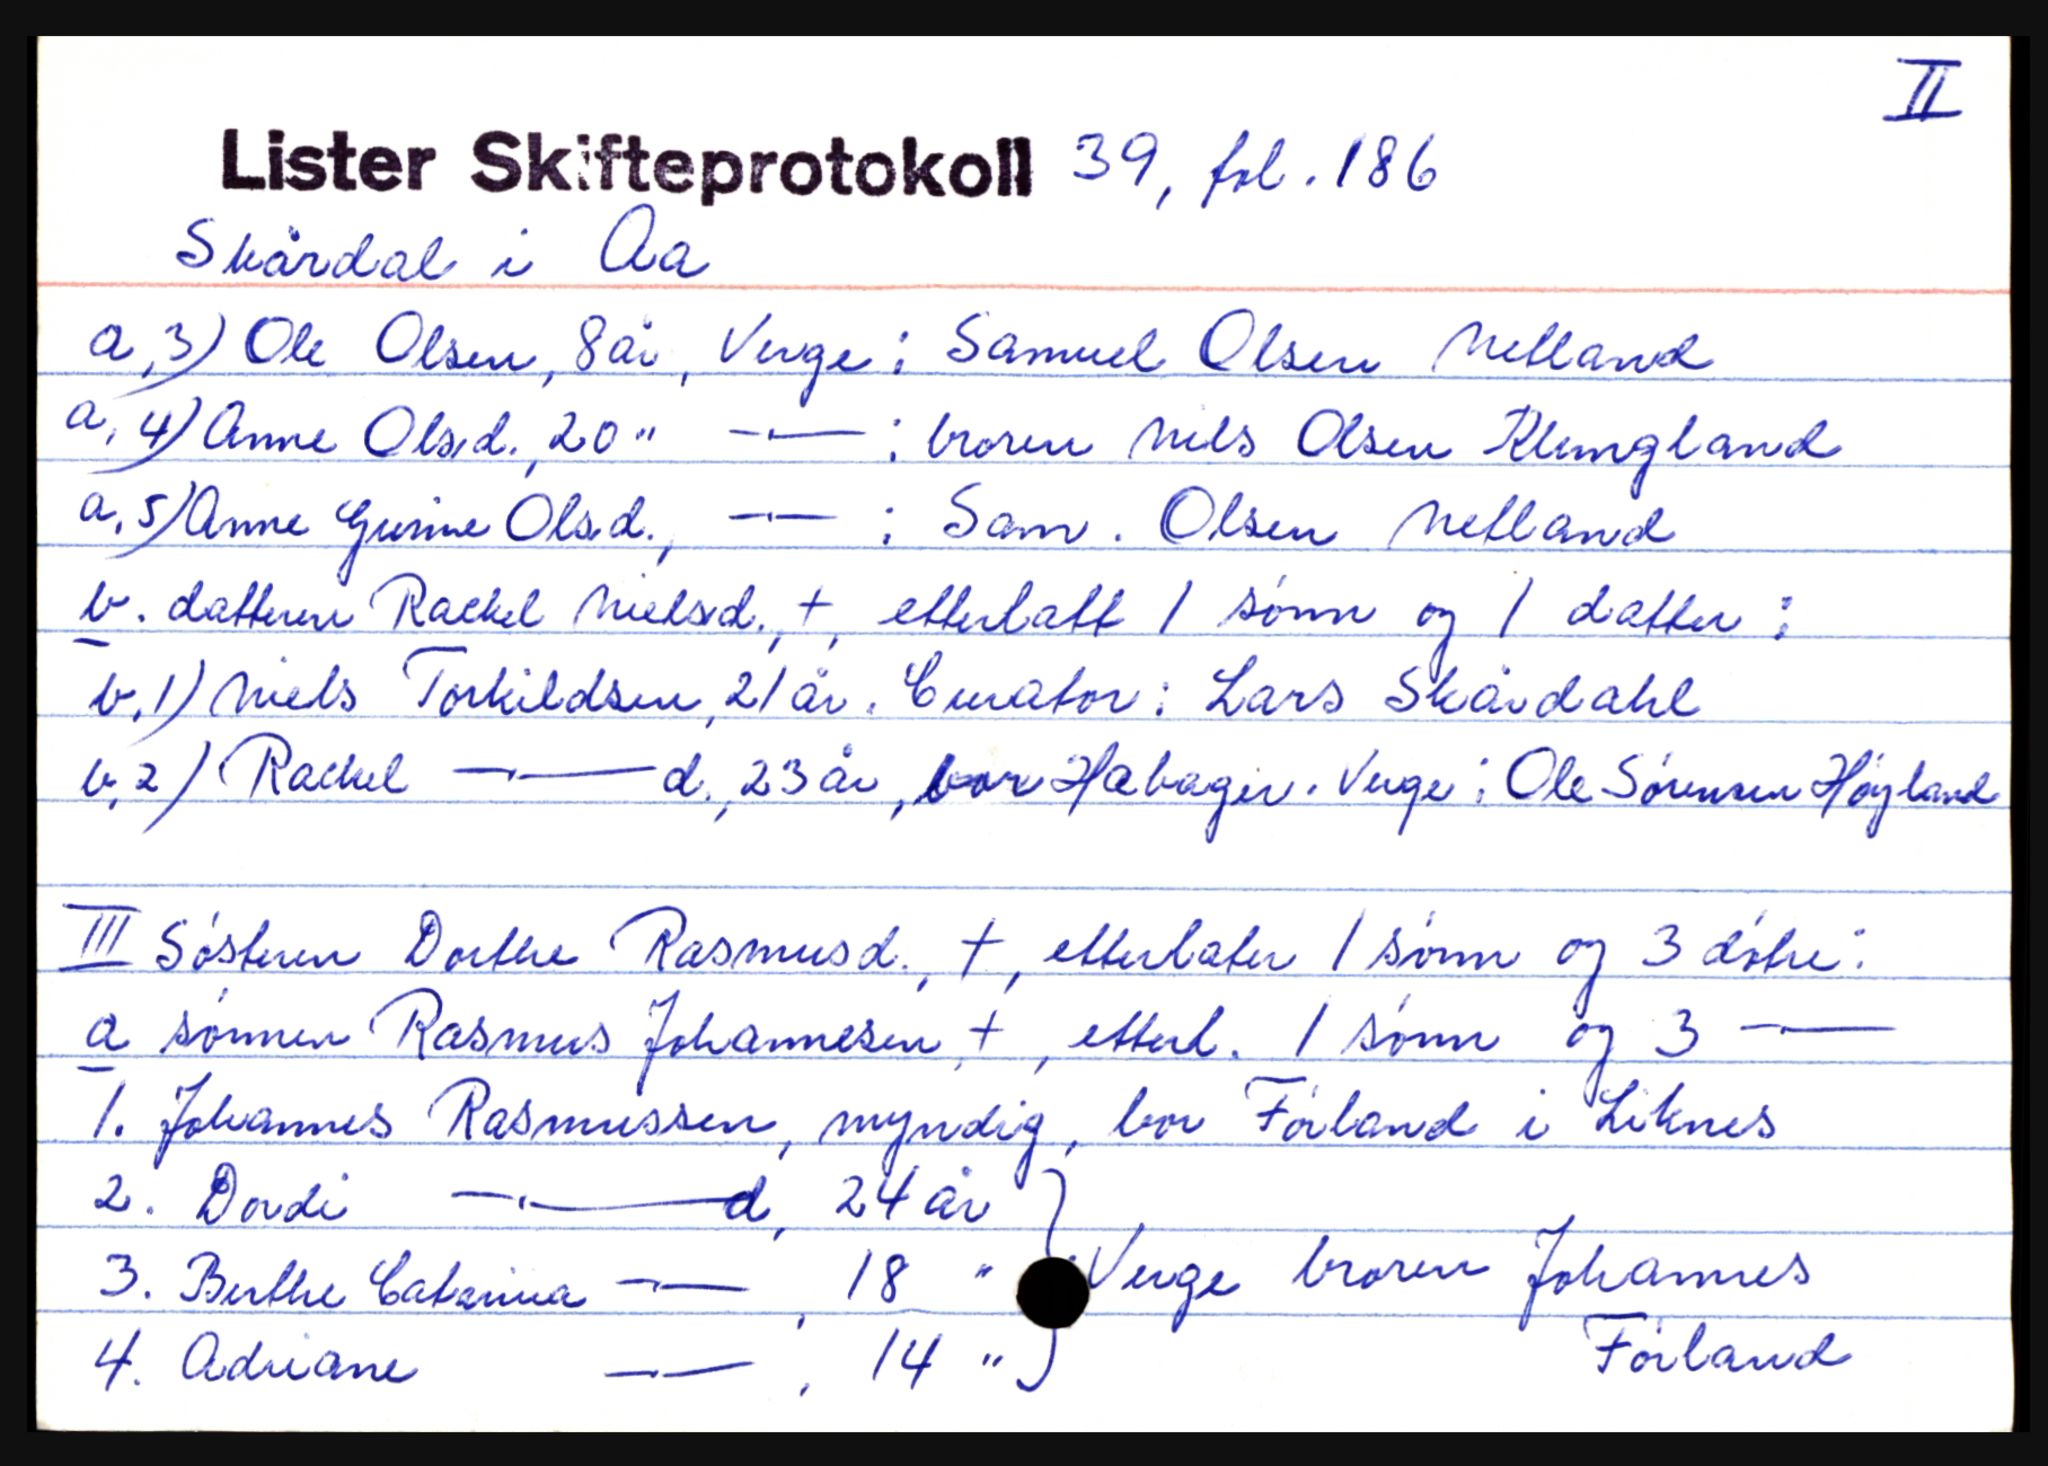 II
Lister Skifteprotokoll 39, fol. 186
Skårdal i Aa
a,3) Ole Olsen, 8 år, Verge: Samuel Olsen Netland
a,4) Anne Olsd., 20 " —〃— : broren Nils Olsen Klungland
a,5) Anne Gurine Olsd., —〃— : Sam. Olsen Netland
b. datteren Rachel Nielsd., +, etterlatt 1 sønn og 1 datter:
b,1) Niels Torkildsen, 21 år. Curator: Lars Skårdahl
b,2) Rachel —〃— d., 23 år, bor Hæbager. Verge: Ole Sørensen Høyland
III Søsteren Dorthe Rasmusd., +, etterlater 1 sønn og 3 døtre:
a sønnen Rasmus Johannesen, +, etterl. 1 sønn og 3 —〃—
1. Johannes Rasmussen, myndig, bor Førland i Liknes
2. Dordi —〃— d, 24 år
3. Berthe Catarina —〃— , 18 " Verge broren Johannes
4. Adriane —〃— , 14 " Førland